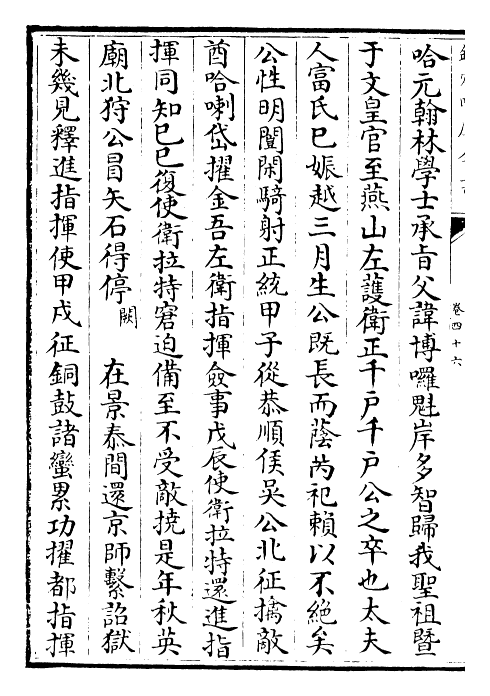 卷四十六
哈元翰林學士承旨父諱博囉魁岸多智歸我聖祖暨
于文皇官至燕山左護衛正千戶千戶公之卒也太夫
人富氏已娠越三月生公既長而蔭芮祀賴以不絕矣
公性明闓閑騎射正統甲子從恭順侯吳公北征擒敵
酋哈喇岱擢金吾左衛指揮僉事戊辰使衛拉特還進指
揮同知己巳復使衛拉特窘迫備至不受敵撓是年秋英
廟北狩公冒矢石得停闕 在景泰間還京師繫詔獄
未幾見釋進指揮使甲戌征銅鼓諸蠻累功擢都指揮